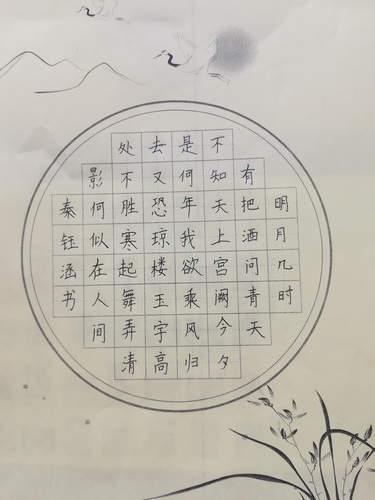 明月几时
有把酒问青天
不知天上宫阙今夕
是何年我欲乘风归
去又恐琼楼玉宇高
处不胜寒起舞弄清
影何似在人间
秦钰涵书